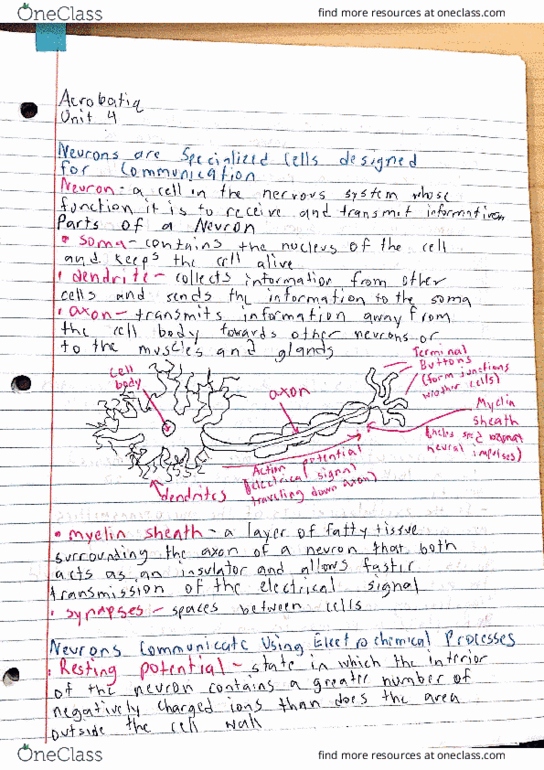 OneClass
find more resources at oneclass.com
Acrobatiq
Unit 4
Neurons are Specialized Cells designed
for Communication
Neuron - a cell in the nervous system whose
function it is to receive and transmit information
Parts of a Neuron
• soma - contains the nucleus of the cell
and keeps the cell alive
• dendrite - collects information from other
cells and sends the information to the soma
• axon - transmits information away from
the cell body towards other neurons or
to the muscles and glands
Cell
body
axon
Terminal
Buttons
(form junctions
w/other cells)
Myelin
sheath
(helps speed
neural impulses)
Action potential
(electrical signal
traveling down axon)
dendrites
• myelin sheath - a layer of fatty tissue
surrounding the axon of a neuron that both
acts as an insulator and allows faster
transmission of the electrical signal
• synapses - spaces between cells
Neurons Communicate Using Electrochemical Processes
• Resting potential - state in which the interior
of the neuron contains a greater number of
negatively charged ions than does the area
outside the cell wall
OneClass
find more resources at oneclass.com